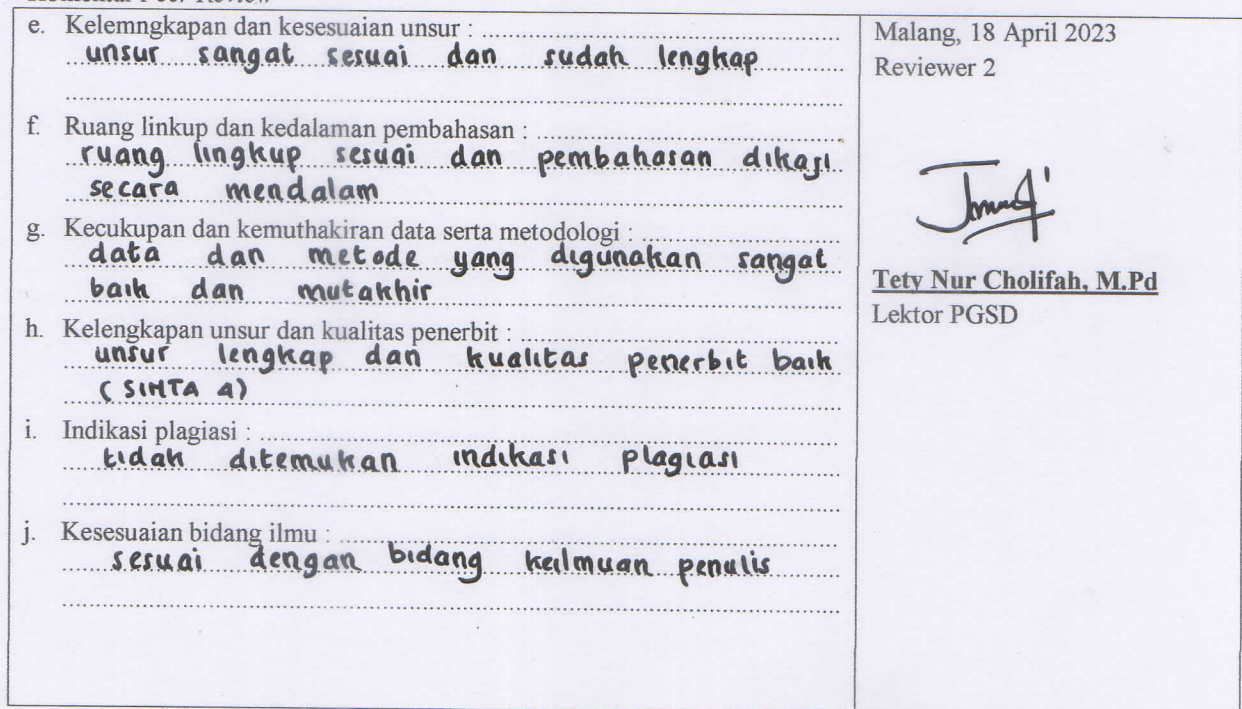 e. Kelemngkapan dan kesesuaian unsur :
unsur sangat sesuai dan sudah lengkap
f. Ruang linkup dan kedalaman pembahasan :
ruang lingkup sesuai dan pembahasan dikaji
secara mendalam
g. Kecukupan dan kemuthakiran data serta metodologi :
data dan metode yang digunakan sangat
baik dan mutakhir
h. Kelengkapan unsur dan kualitas penerbit :
unsur lengkap dan kualitas penerbit baik
(SINTA 4)
i. Indikasi plagiasi :
tidak ditemukan indikasi plagiasi
j. Kesesuaian bidang ilmu :
sesuai dengan bidang keilmuan penulis
Malang, 18 April 2023
Reviewer 2
Tety Nur Cholifah, M.Pd
Lektor PGSD